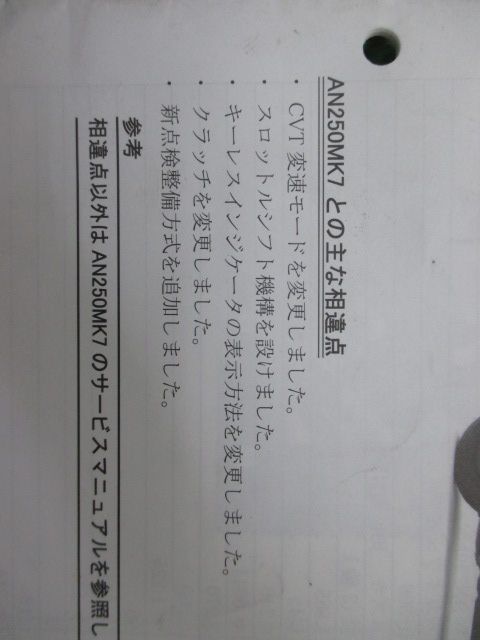 AN250MK7 との主な相違点
・ CVT 変速モードを変更しました。
・ スロットルシフト機構を設けました。
・ キーレスインジケータの表示方法を変更しました。
・ クラッチを変更しました。
・ 新点検整備方式を追加しました。
参考
相違点以外は AN250MK7 のサービスマニュアルを参照し